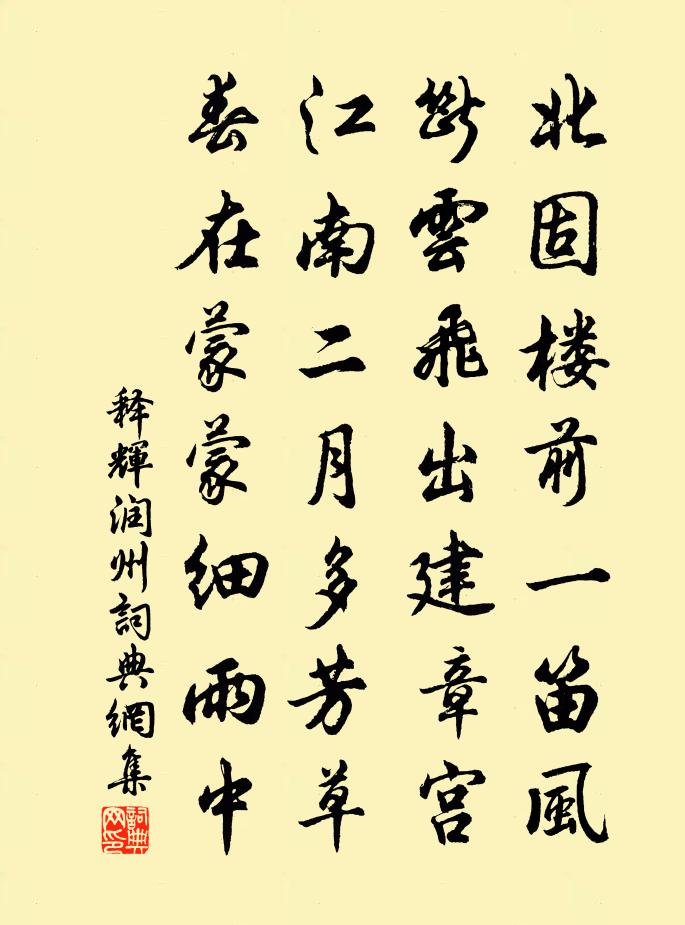 北固楼前一笛風
斷雲飛出建章宫
江南二月多芳草
春在蒙蒙细雨中
释輝润州詞典網集
詞典网印